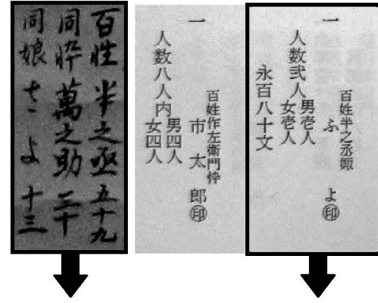 一
百姓半之丞娵
ふよ㊞
人数弐人
男壱人
女壱人
永百八十文
一
百姓作左衛門忰
市太郎㊞
人数八人内
男四人
女四人
百姓 半之丞 五十九
同忰 萬之助 三十
同娘 十三